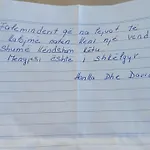 Falemindent qe na lejuat te
kalojme naten. Keni nje vend
Shume Kendshem Ketu.
Mengjesi eshte i shkelqyr
Anila Dhe David